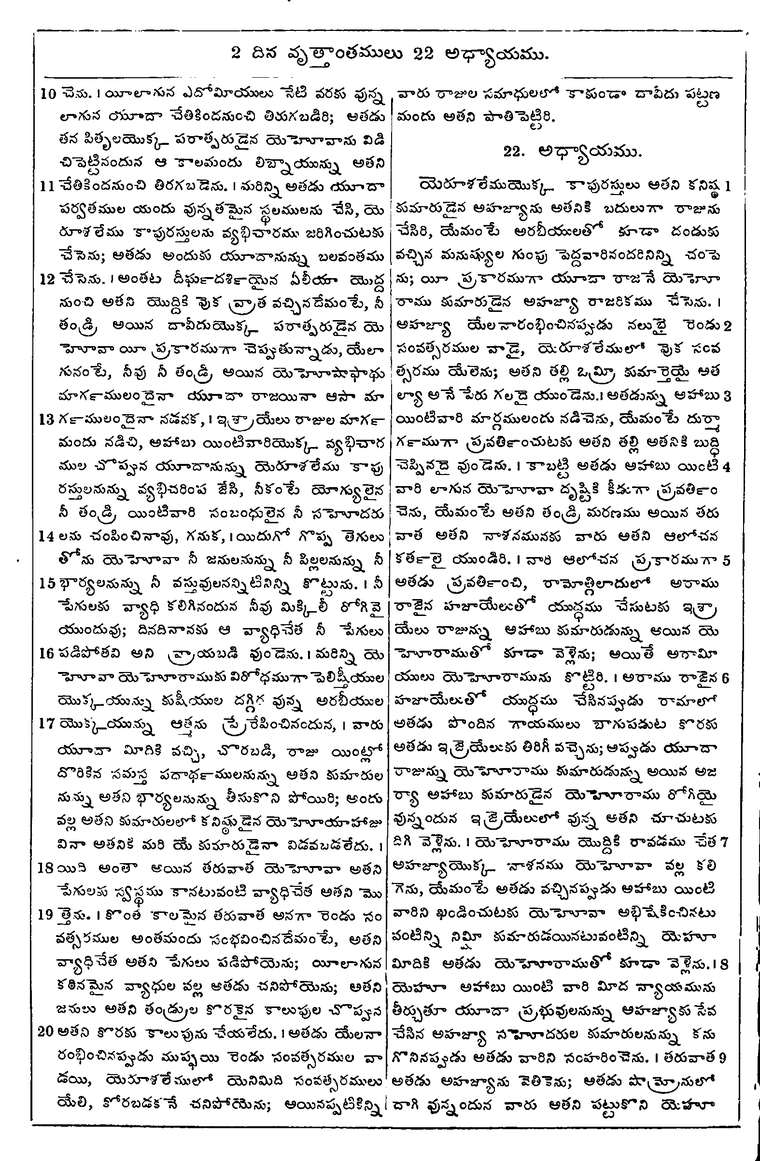 2 దిన వృత్తాంతములు 22 అధ్యాయము.
10 చెను. । యీలాగున ఎదోమీయులు నేటి వరకు వున్న
లాగున యూదా చేతికిందనుంచి తిరుగబడిరి; అతడు
తన పితృలయొక్క పరాత్పరుడైన యెహోవాను విడి
చిపెట్టినందున ఆ కాలమందు లిబ్నాయున్ను అతని
11 చేతికిందనుంచి తిరగబడెను. । మరిన్ని అతడు యూదా
పర్వతముల యందు వున్నతమైన స్థలములను చేసి, యె
రూశలేము కాపురస్తులను వ్యభిచారము జరిగించుటకు
చేసెను; అతడు అందుకు యూదానున్ను బలవంతము
12 చేసెను. । అంతట దీర్ఘదర్శియైన ఏలీయా యొద్ద
నుంచి అతని యొద్దికి వొక వ్రాత వచ్చినదేమంటే, నీ
తండ్రి అయిన దావీదుయొక్క పరాత్పరుడైన యె
హోవా యీ ప్రకారముగా చెప్పుతున్నాడు, యేలా
గునంటే, నీవు నీ తండ్రి అయిన యెహోషాఫాథు
మార్గములందైనా యూదా రాజయినా ఆసా మా
13 ర్గములందైనా నడవక, । ఇశ్రాయేలు రాజుల మార్గ
మందు నడిచి, అహాబు యింటివారియొక్క వ్యభిచార
ముల చొప్పున యూదానున్ను యెరూశలేము కాపు
రస్తులనున్ను వ్యభిచరింప జేసి, నీకంటే యోగ్యులైన
నీ తండ్రి యింటివారి సంబంధులైన నీ సహోదరు
14 లను చంపించినావు, గనుక, । యిదుగో గొప్ప తెగులు
తోను యెహోవా నీ జనులనున్ను నీ పిల్లలనున్ను నీ
15 భార్యలనున్ను నీ వస్తువులనన్నిటినిన్ని కొట్టును. । నీ
పేగులకు వ్యాధి కలిగినందున నీవు మిక్కిలీ రోగివై
యుందువు; దినదినానకు ఆ వ్యాధిచేత నీ పేగులు
16 పడిపోతవి అని వ్రాయబడి వుండెను. । మరిన్ని యె
హోవా యెహోరాముకు విరోధముగా పెలిష్తీయుల
యొక్కయున్ను కుషీయుల దగ్గిర వున్న అరబీయుల
17 యొక్కయున్ను ఆత్మను ప్రేరేపించినందున, । వారు
యూదా మీదికి వచ్చి, చొరబడి, రాజు యింట్లో
దొరికిన సమస్త పదార్థములనున్ను అతని కుమారుల
నున్ను అతని భార్యలనున్ను తీసుకొని పోయిరి; అందు
వల్ల అతని కుమారులలో కనిష్ఠుడైన యెహోయాహాజు
వినా అతనికి మరి యే కుమారుడైనా విడవబడలేదు. ।
18 యిది అంతా అయిన తరువాత యెహోవా అతని
పేగులకు స్వస్థము కానటువంటి వ్యాధిచేత అతని మొ
19 త్తెను. । కొంత కాలమైన తరువాత అనగా రెండు సం
వత్సరముల అంతమందు సంభవించినదేమంటే, అతని
వ్యాధిచేత అతని పేగులు పడిపోయెను; యీలాగున
కఠినమైన వ్యాధుల వల్ల అతడు చనిపోయెను; అతని
జనులు అతని తండ్రుల కొరకైన కాలుపుల చొప్పున
20 అతని కొరకు కాలుపును చేయలేదు. । అతడు యేలనా
రంభించినప్పుడు ముప్ఫయి రెండు సంవత్సరముల వా
డయి, యెరూశలేములో యెనిమిది సంవత్సరములు
యేలి, కోరబడకనే చనిపోయెను; అయినప్పటికిన్ని
వారు రాజుల సమాధులలో కాకుండా దావీదు పట్టణ
మందు అతని పాతిపెట్టిరి.
22. అధ్యాయము.
యెరూశలేముయొక్క కాపురస్తులు అతని కనిష్ఠ 1
కుమారుడైన అహజ్యాను అతనికి బదులుగా రాజును
చేసిరి, యేమంటే అరబీయులతో కూడా దండుకు
వచ్చిన మనుష్యుల గుంపు పెద్దవారినందరినిన్ని చంపె
ను; యీ ప్రకారముగా యూదా రాజనే యెహో
రాము కుమారుడైన అహజ్యా రాజరికము చేసెను. ।
అహజ్యా యేలనారంభించినప్పుడు నలుభై రెండు 2
సంవత్సరముల వాడై, యెరూశలేములో వొక సంవ
త్సరము యేలెను; అతని తల్లి ఒమ్రీ కుమార్తెయై అత
ల్యా అనే పేరు గలదై యుండెను. । అతడున్ను అహాబు 3
యింటివారి మార్గములందు నడిచెను, యేమంటే దుర్మా
ర్గముగా ప్రవర్తించుటకు అతని తల్లి అతనికి బుద్ధి
చెప్పినదై వుండెను. । కాబట్టి అతడు అహాబు యింటి 4
వారి లాగున యెహోవా దృష్టికి కీడుగా ప్రవర్తిం
చెను, యేమంటే అతని తండ్రి మరణము అయిన తరు
వాత అతని నాశనమునకు వారు అతని ఆలోచన
కర్తలై యుండిరి. । వారి ఆలోచన ప్రకారముగా 5
అతడు ప్రవర్తించి, రామోత్గిలాదులో అరాము
రాజైన హజాయేలుతో యుద్ధము చేసుటకు ఇశ్రా
యేలు రాజున్ను అహాబు కుమారుడున్ను అయిన యె
హోరాముతో కూడా వెళ్లెను; అయితే అరామీ
యులు యెహోరామును కొట్టిరి. । అరాము రాజైన 6
హజాయేలుతో యుద్ధము చేసినప్పుడు రామాలో
అతడు పొందిన గాయములు బాగుపడుట కొరకు
అతడు ఇజ్రెయేలుకు తిరిగీ వచ్చెను; అప్పుడు యూదా
రాజున్ను యెహోరాము కుమారుడున్ను అయిన అజ
ర్యా అహాబు కుమారుడైన యెహోరాము రోగియై
వున్నందున ఇజ్రెయేలులో వున్న అతని చూచుటకు
దిగి వెళ్లెను. । యెహోరాము యొద్దికి రావడము చేత 7
అహజ్యాయొక్క నాశనము యెహోవా వల్ల కలి
గెను, యేమంటే అతడు వచ్చినప్పుడు అహాబు యింటి
వారిని ఖండించుటకు యెహోవా అభిషేకించినటు
వంటిన్ని నిమ్షీ కుమారుడయినటువంటిన్ని యెహూ
మీదికి అతడు యెహోరాముతో కూడా వెళ్లెను. । 8
యెహూ అహాబు యింటి వారి మీద న్యాయమును
తీర్చుతూ యూదా ప్రభువులనున్ను అహజ్యాకు సేవ
చేసిన అహజ్యా సహోదరుల కుమారులనున్ను కను
గొనినప్పుడు అతడు వారిని సంహరించెను. । తరువాత 9
అతడు అహజ్యాను వెతికెను; అతడు షొమ్రోనులో
దాగి వున్నందున వారు అతని పట్టుకొని యెహూ